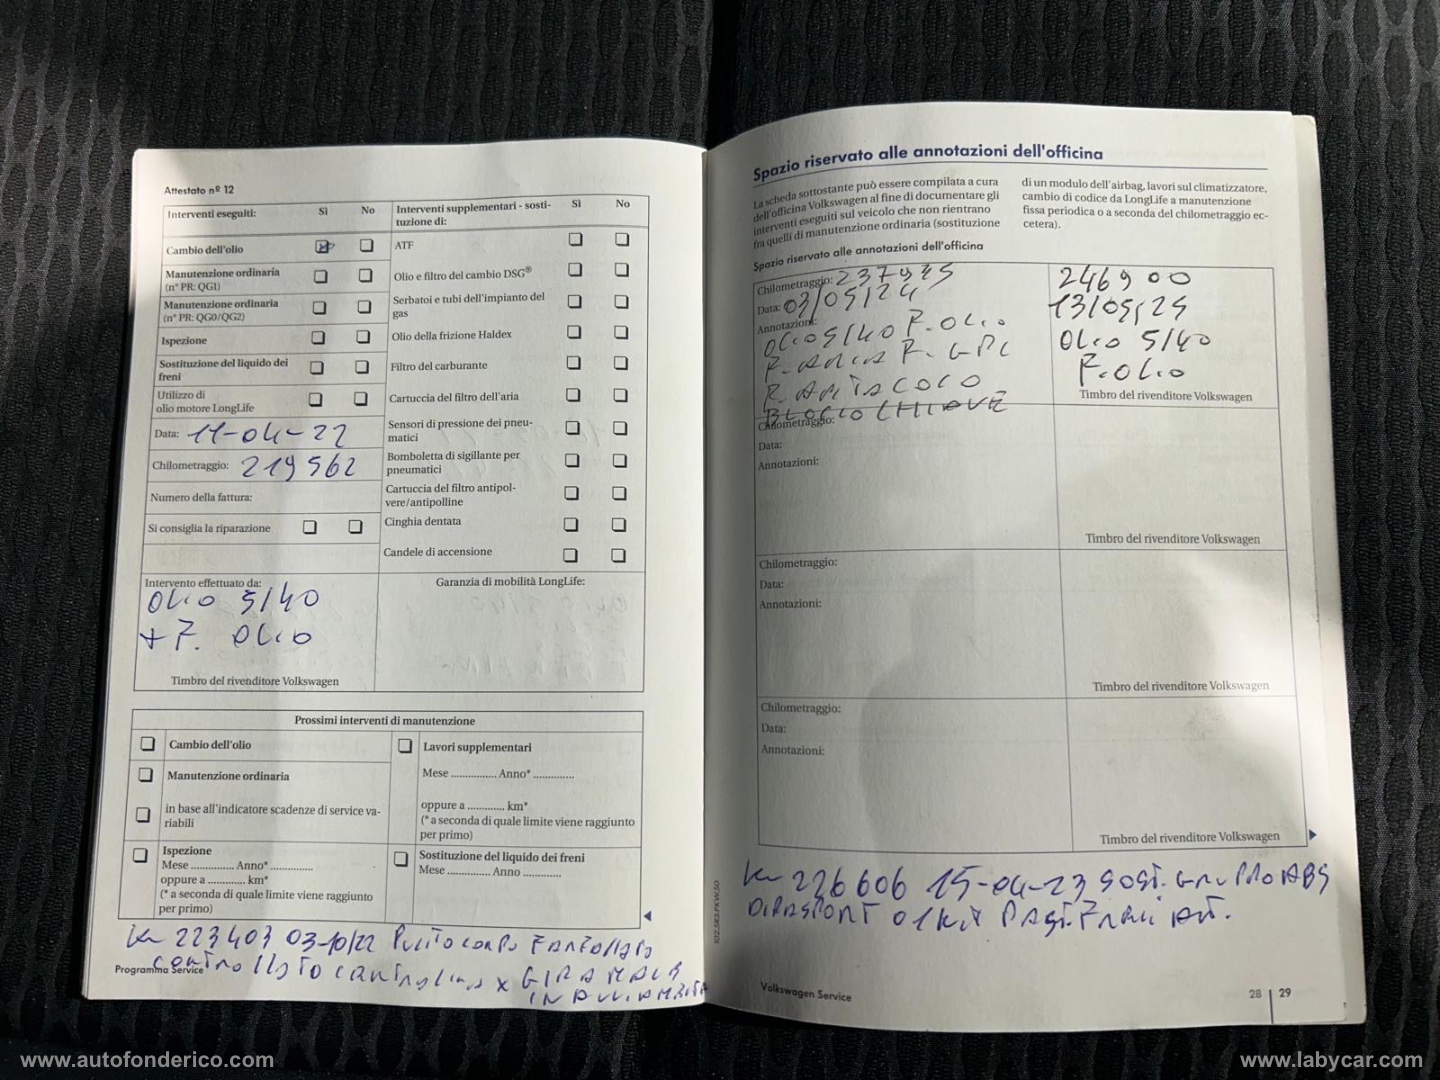 Attestato nº 12
Interventi eseguiti: Sì No
Cambio dell'olio
Manutenzione ordinaria
(nº PR: QG1)
Manutenzione ordinaria
(nº PR: QG0/QG2)
Ispezione
Sostituzione del liquido dei
freni
Utilizzo di
olio motore LongLife
Data: 11-04-22
Chilometraggio: 219562
Numero della fattura:
Si consiglia la riparazione
Intervento effettuato da:
OLIO 5/40
+ F. OLIO
Timbro del rivenditore Volkswagen
Interventi supplementari - sosti-
tuzione di: Sì No
ATF
Olio e filtro del cambio DSG®
Serbatoi e tubi dell'impianto del
gas
Olio della frizione Haldex
Filtro del carburante
Cartuccia del filtro dell'aria
Sensori di pressione dei pneu-
matici
Bomboletta di sigillante per
pneumatici
Cartuccia del filtro antipol-
vere/antipolline
Cinghia dentata
Candele di accensione
Garanzia di mobilità LongLife:
Prossimi interventi di manutenzione
Cambio dell'olio
Manutenzione ordinaria
in base all'indicatore scadenze di service va-
riabili
Ispezione
Mese ............... Anno* ...............
oppure a ............. km*
(* a seconda di quale limite viene raggiunto
per primo)
Lavori supplementari
Mese ............... Anno* ..............
oppure a ............. km*
(* a seconda di quale limite viene raggiunto
per primo)
Sostituzione del liquido dei freni
Mese ............... Anno .............
Km 223403 03-10/22 PULITO CORPO FARFALLATO
CONTROLLATO
Programma Service
IN
Spazio riservato alle annotazioni dell'officina
La scheda sottostante può essere compilata a cura
dell'officina Volkswagen al fine di documentare gli
interventi eseguiti sul veicolo che non rientrano
fra quelli di manutenzione ordinaria (sostituzione
di un modulo dell'airbag, lavori sul climatizzatore,
cambio di codice da LongLife a manutenzione
fissa periodica o a seconda del chilometraggio ec-
cetera).
Spazio riservato alle annotazioni dell'officina
Chilometraggio: 237935
Data: 03/05/24
Annotazioni:
OLIO 5/40 F. OLIO
F. ARIA F. GPL
F. ABITACOLO
BLOCCO CHIAVE
246900
13/05/25
OLIO 5/40
F. OLIO
Timbro del rivenditore Volkswagen
Chilometraggio:
Data:
Annotazioni:
Timbro del rivenditore Volkswagen
Chilometraggio:
Data:
Annotazioni:
Timbro del rivenditore Volkswagen
Chilometraggio:
Data:
Annotazioni:
Timbro del rivenditore Volkswagen
Km 226606 15-04-23 SOST. GRUPPO ABS
KIT PAST. FRENI ANT.
102.5R3.PKW.50
Volkswagen Service
28 | 29
www.autofonderico.com
www.labycar.com